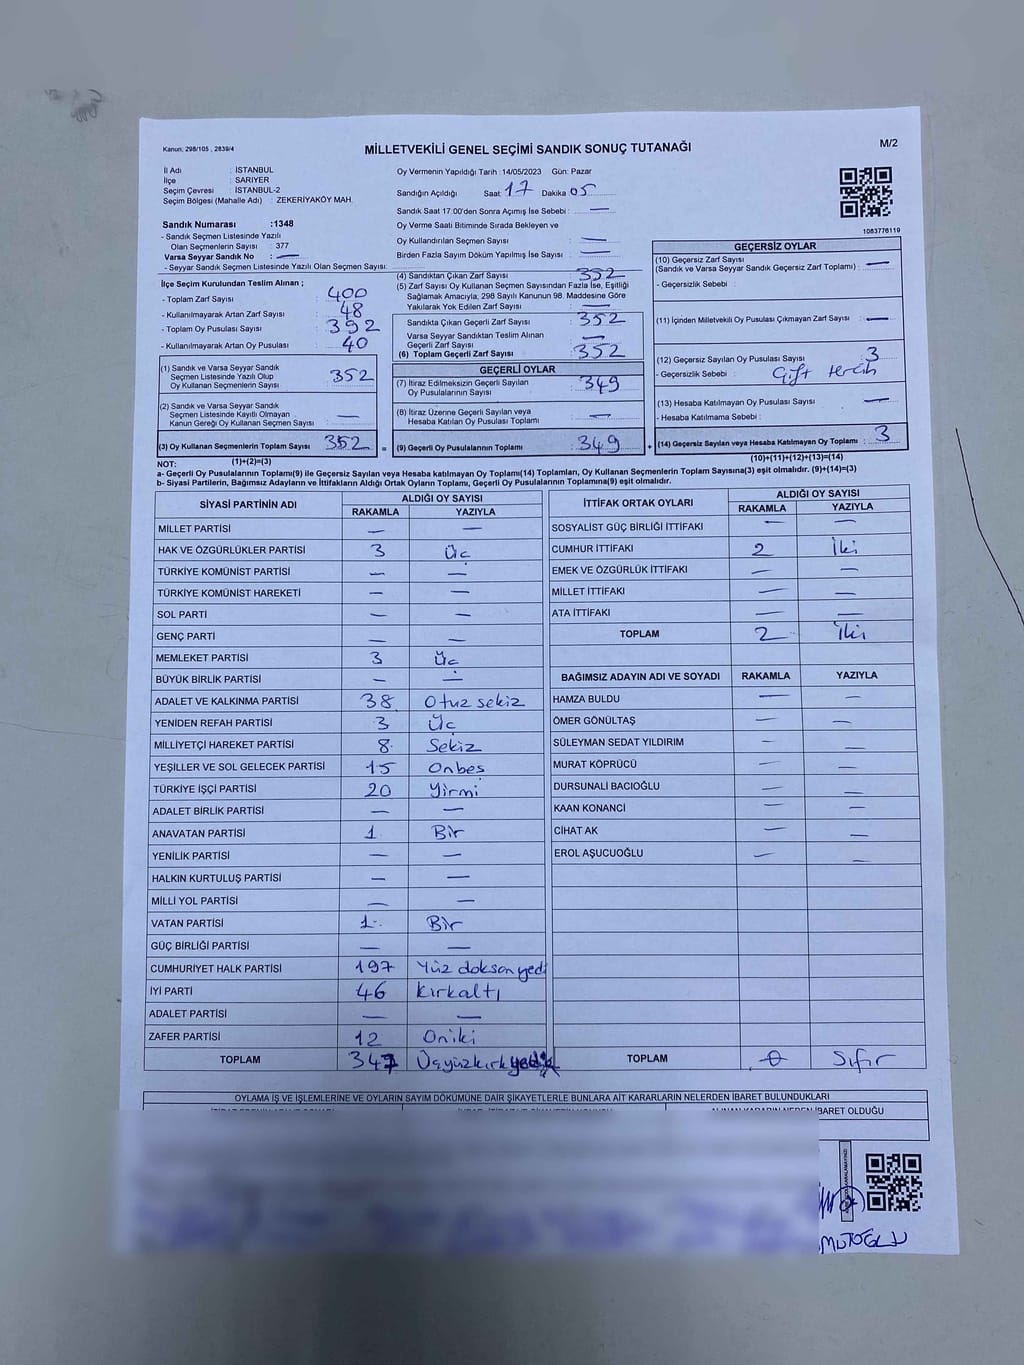 Kanun: 298/105 , 2839/4
MİLLETVEKİLİ GENEL SEÇİMİ SANDIK SONUÇ TUTANAĞI
M/2
İl Adı : İSTANBUL
İlçe : SARIYER
Seçim Çevresi : İSTANBUL-2
Seçim Bölgesi (Mahalle Adı) : ZEKERİYAKÖY MAH.
Sandık Numarası :1348
- Sandık Seçmen Listesinde Yazılı
Olan Seçmenlerin Sayısı : 377
Varsa Seyyar Sandık No : —
- Seyyar Sandık Seçmen Listesinde Yazılı Olan Seçmen Sayısı:
İlçe Seçim Kurulundan Teslim Alınan ;
- Toplam Zarf Sayısı : 400
- Kullanılmayarak Artan Zarf Sayısı : 48
- Toplam Oy Pusulası Sayısı : 392
- Kullanılmayarak Artan Oy Pusulası : 40
(1) Sandık ve Varsa Seyyar Sandık
Seçmen Listesinde Yazılı Olup
Oy Kullanan Seçmenlerin Sayısı : 352
(2) Sandık ve Varsa Seyyar Sandık
Seçmen Listesinde Kayıtlı Olmayan
Kanun Gereği Oy Kullanan Seçmen Sayısı : —
(3) Oy Kullanan Seçmenlerin Toplam Sayısı : 352
(1)+(2)=(3)
Oy Vermenin Yapıldığı Tarih : 14/05/2023 Gün: Pazar
Sandığın Açıldığı Saat: 17 Dakika 05
Sandık Saat 17:00'den Sonra Açımış İse Sebebi : —
Oy Verme Saati Bitiminde Sırada Bekleyen ve
Oy Kullandırılan Seçmen Sayısı : —
Birden Fazla Sayım Döküm Yapılmış İse Sayısı : —
(4) Sandıktan Çıkan Zarf Sayısı : 352
(5) Zarf Sayısı Oy Kullanan Seçmen Sayısından Fazla İse, Eşitliği
Sağlamak Amacıyla, 298 Sayılı Kanunun 98. Maddesine Göre
Yakılarak Yok Edilen Zarf Sayısı : —
Sandıkta Çıkan Geçerli Zarf Sayısı : 352
Varsa Seyyar Sandıktan Teslim Alınan
Geçerli Zarf Sayısı : —
(6) Toplam Geçerli Zarf Sayısı : 352
GEÇERLİ OYLAR
(7) İtiraz Edilmeksizin Geçerli Sayılan
Oy Pusulalarının Sayısı : 349
(8) İtiraz Üzerine Geçerli Sayılan veya
Hesaba Katılan Oy Pusulası Toplamı : —
= (9) Geçerli Oy Pusulalarının Toplamı : 349 +
1083776119
GEÇERSİZ OYLAR
(10) Geçersiz Zarf Sayısı
(Sandık ve Varsa Seyyar Sandık Geçersiz Zarf Toplamı) : —
- Geçersizlik Sebebi :
(11) İçinden Milletvekili Oy Pusulası Çıkmayan Zarf Sayısı : —
(12) Geçersiz Sayılan Oy Pusulası Sayısı : 3
- Geçersizlik Sebebi : Çift tercih
(13) Hesaba Katılmayan Oy Pusulası Sayısı : —
- Hesaba Katılmama Sebebi :
(14) Geçersiz Sayılan veya Hesaba Katılmayan Oy Toplamı : 3
(10)+(11)+(12)+(13)=(14)
NOT:
a- Geçerli Oy Pusulalarının Toplamı(9) ile Geçersiz Sayılan veya Hesaba katılmayan Oy Toplamı(14) Toplamları, Oy Kullanan Seçmenlerin Toplam Sayısına(3) eşit olmalıdır. (9)+(14)=(3)
b- Siyasi Partilerin, Bağımsız Adayların ve İttifakların Aldığı Ortak Oyların Toplamı, Geçerli Oy Pusulalarının Toplamına(9) eşit olmalıdır.
SİYASİ PARTİNİN ADI ALDIĞI OY SAYISI
RAKAMLA YAZIYLA
MİLLET PARTİSİ — —
HAK VE ÖZGÜRLÜKLER PARTİSİ 3 Üç
TÜRKİYE KOMÜNİST PARTİSİ — —
TÜRKİYE KOMÜNİST HAREKETİ — —
SOL PARTİ — —
GENÇ PARTİ — —
MEMLEKET PARTİSİ 3 Üç
BÜYÜK BİRLİK PARTİSİ — —
ADALET VE KALKINMA PARTİSİ 38 Otuz sekiz
YENİDEN REFAH PARTİSİ 3 Üç
MİLLİYETÇİ HAREKET PARTİSİ 8 Sekiz
YEŞİLLER VE SOL GELECEK PARTİSİ 15 Onbeş
TÜRKİYE İŞÇİ PARTİSİ 20 Yirmi
ADALET BİRLİK PARTİSİ — —
ANAVATAN PARTİSİ 1 Bir
YENİLİK PARTİSİ — —
HALKIN KURTULUŞ PARTİSİ — —
MİLLİ YOL PARTİSİ — —
VATAN PARTİSİ 1 Bir
GÜÇ BİRLİĞİ PARTİSİ — —
CUMHURİYET HALK PARTİSİ 197 Yüz doksan yedi
İYİ PARTİ 46 Kırkaltı
ADALET PARTİSİ — —
ZAFER PARTİSİ 12 Oniki
TOPLAM 347 Üçyüzkırkyedi
İTTİFAK ORTAK OYLARI ALDIĞI OY SAYISI
RAKAMLA YAZIYLA
SOSYALİST GÜÇ BİRLİĞİ İTTİFAKI — —
CUMHUR İTTİFAKI 2 İki
EMEK VE ÖZGÜRLÜK İTTİFAKI — —
MİLLET İTTİFAKI — —
ATA İTTİFAKI — —
TOPLAM 2 İki
BAĞIMSIZ ADAYIN ADI VE SOYADI RAKAMLA YAZIYLA
HAMZA BULDU — —
ÖMER GÖNÜLTAŞ — —
SÜLEYMAN SEDAT YILDIRIM — —
MURAT KÖPRÜCÜ — —
DURSUNALİ BACIOĞLU — —
KAAN KONANCİ — —
CİHAT AK — —
EROL AŞUCUOĞLU — —
TOPLAM 0 Sıfır
OYLAMA İŞ VE İŞLEMLERİNE VE OYLARIN SAYIM DÖKÜMÜNE DAİR ŞİKAYETLERLE BUNLARA AİT KARARLARIN NELERDEN İBARET BULUNDUKLARI
ALINAN KARARIN NEDEN İBARET OLDUĞU